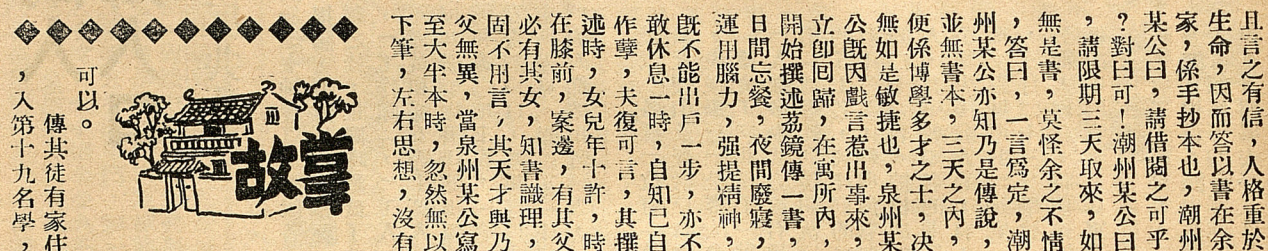 且言之有信，人格重於
生命，因而答以書在余
家，係手抄本也，潮州
某公曰，請借閱之可乎
？對曰可！潮州某公曰
，請限期三天取來，如
無是書，莫怪余之不情
，答曰，一言爲定，潮
州某公亦知乃是傳說，
並無書本，三天之內，
便係博學多才之士，決
無如是敏捷也，泉州某
公旣因戲言惹出事來，
立卽回歸，在寓所內，
開始撰述荔鏡傳一書，
日間忘餐，夜間廢寢，
運用腦力，强提精神，
旣不能出戶一步，亦不
敢休息一時，自知已自
作孽，夫復可言，其撰
述時，女兒年十許，時
在膝前，案邊，有其父
必有其女，知書識理，
固不用言，其天才與乃
父無異，當泉州某公寫
至大半本時，忽然無以
下筆，左右思想，沒有
故事
可以。
傳其徒有家住
，入第十九名學，